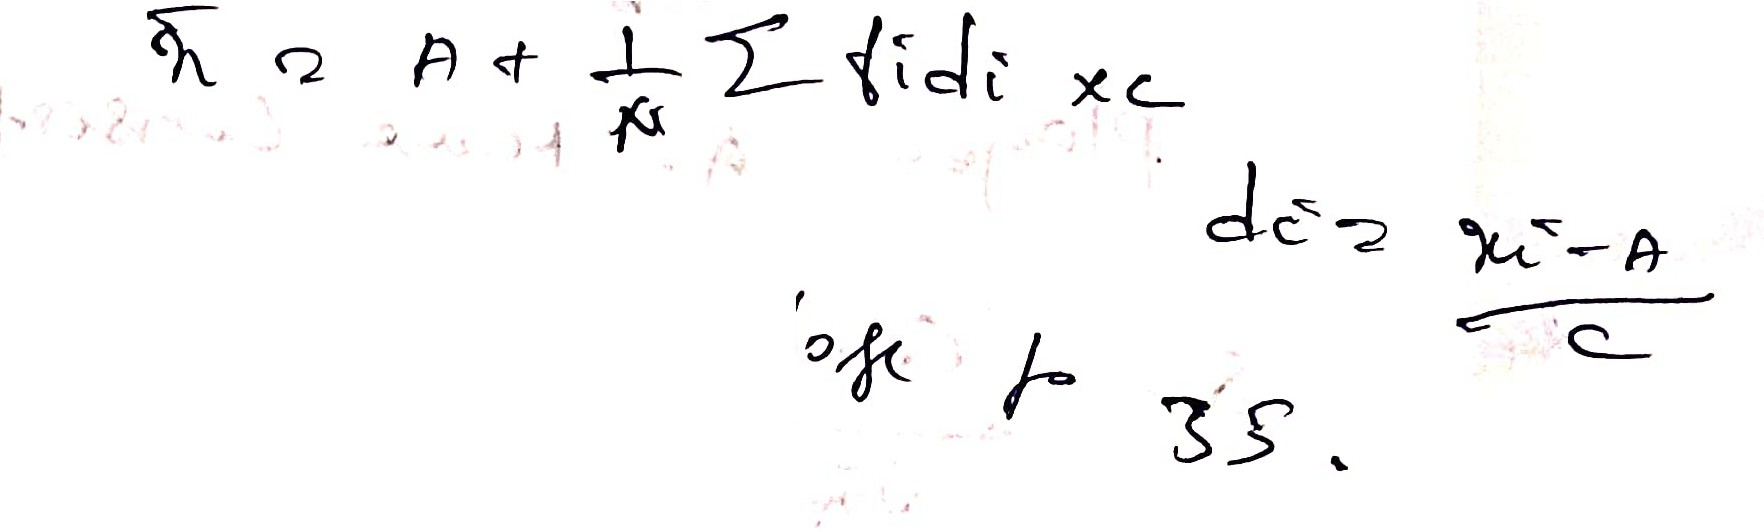 x̄ = A + 1/N Σ fidi × c
di = xi - A / c
35.